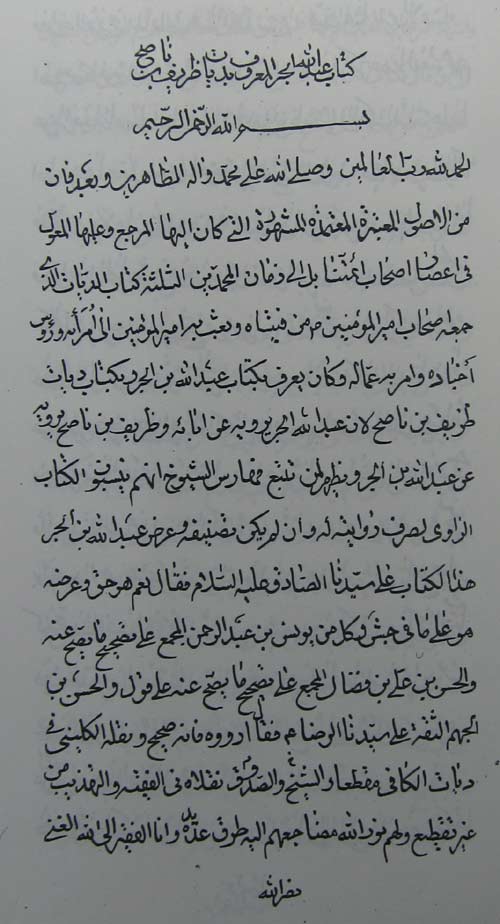 كتاب عبدالله بن الحر المعروف بديات ظريف بن ناصح
بسم الله الرحمن الرحيم
الحمد لله رب العالمين وصلى الله على محمد واله الطاهرين وبعد فان
من الاصول المعتبرة المعتمدة المشهورة التي كان اليها المرجع وعليها المعول
في اعصار اصحاب ائمتنا بل الى زمان المحمدين الثلثة كتاب الديات الذي
جمعه اصحاب امير المومنين م من فتياه وبعث به امير المومنين الى امرائه ورؤس
أجناده وامر به عماله وكان يعرف بكتاب عبد الله بن الحر وبكتاب ديات
ظريف بن ناصح لان عبد الله الحر يرويه عن ابائه وظريف بن ناصح يرويه
عن عبد الله بن الحر ويظهر لمن تتبع فهارس الشيوخ انهم ينسبون الكتاب
الراوى لصرف روايته له وان لم يكن تصنيفه وعرض عبد الله بن الحر
هذا الكتاب على سيدنا الصادق عليه السلام فقال نعم هو حق وعرضه
هو على ما في كل من يونس بن عبد الرحمن المجمع على تصحيح ما يصح عنه
والحسن بن علي بن فضال المجمع على تصحيح ما يصح عنه على قول والحسن بن
الجهم الثقة على سيدنا الرضا م فقال ارووه فانه صحيح ونقله الكليني في
ديات الكافي مقطعا والشيخ والصدوق نقلاه في الفقيه والتهذيب من
غير تقطيع ولهم نور الله مضاجعهم اليه طرق عديدة وانا الفقير الى الله الغني
نصر الله